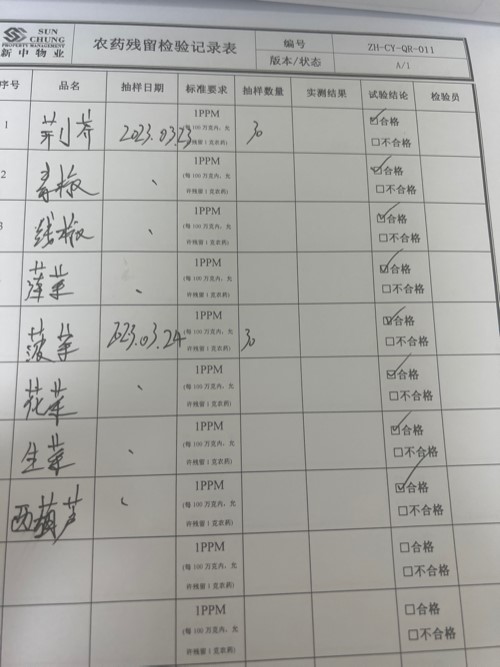 SUN
CHUNG
PROPERTY MANAGEMENT
新中物业
农药残留检验记录表
编号
ZH-CY-QR-011
版本/状态
A/1
序号 品名 抽样日期 标准要求 抽样数量 实测结果 试验结论 检验员
1 荆芥 2023.03.23 1PPM 30 ☑合格
(每100万克内，允
许残留1克农药)
□不合格
2 青椒 、 1PPM ☑合格
(每100万克内，允
许残留1克农药)
□不合格
3 线椒 、 1PPM ☑合格
(每100万克内，允
许残留1克农药)
□不合格
、 1PPM ☑合格
(每100万克内，允
许残留1克农药)
□不合格
菠菜 2023.03.24 1PPM 30 ☑合格
(每100万克内，允
许残留1克农药)
□不合格
花菜 、 1PPM ☑合格
(每100万克内，允
许残留1克农药)
□不合格
生菜 、 1PPM ☑合格
(每100万克内，允
许残留1克农药)
□不合格
西葫芦 、 1PPM ☑合格
(每100万克内，允
许残留1克农药)
□不合格
1PPM □合格
(每100万克内，允
许残留1克农药)
□不合格
1PPM □合格
(每100万克内，允
许残留1克农药)
□不合格